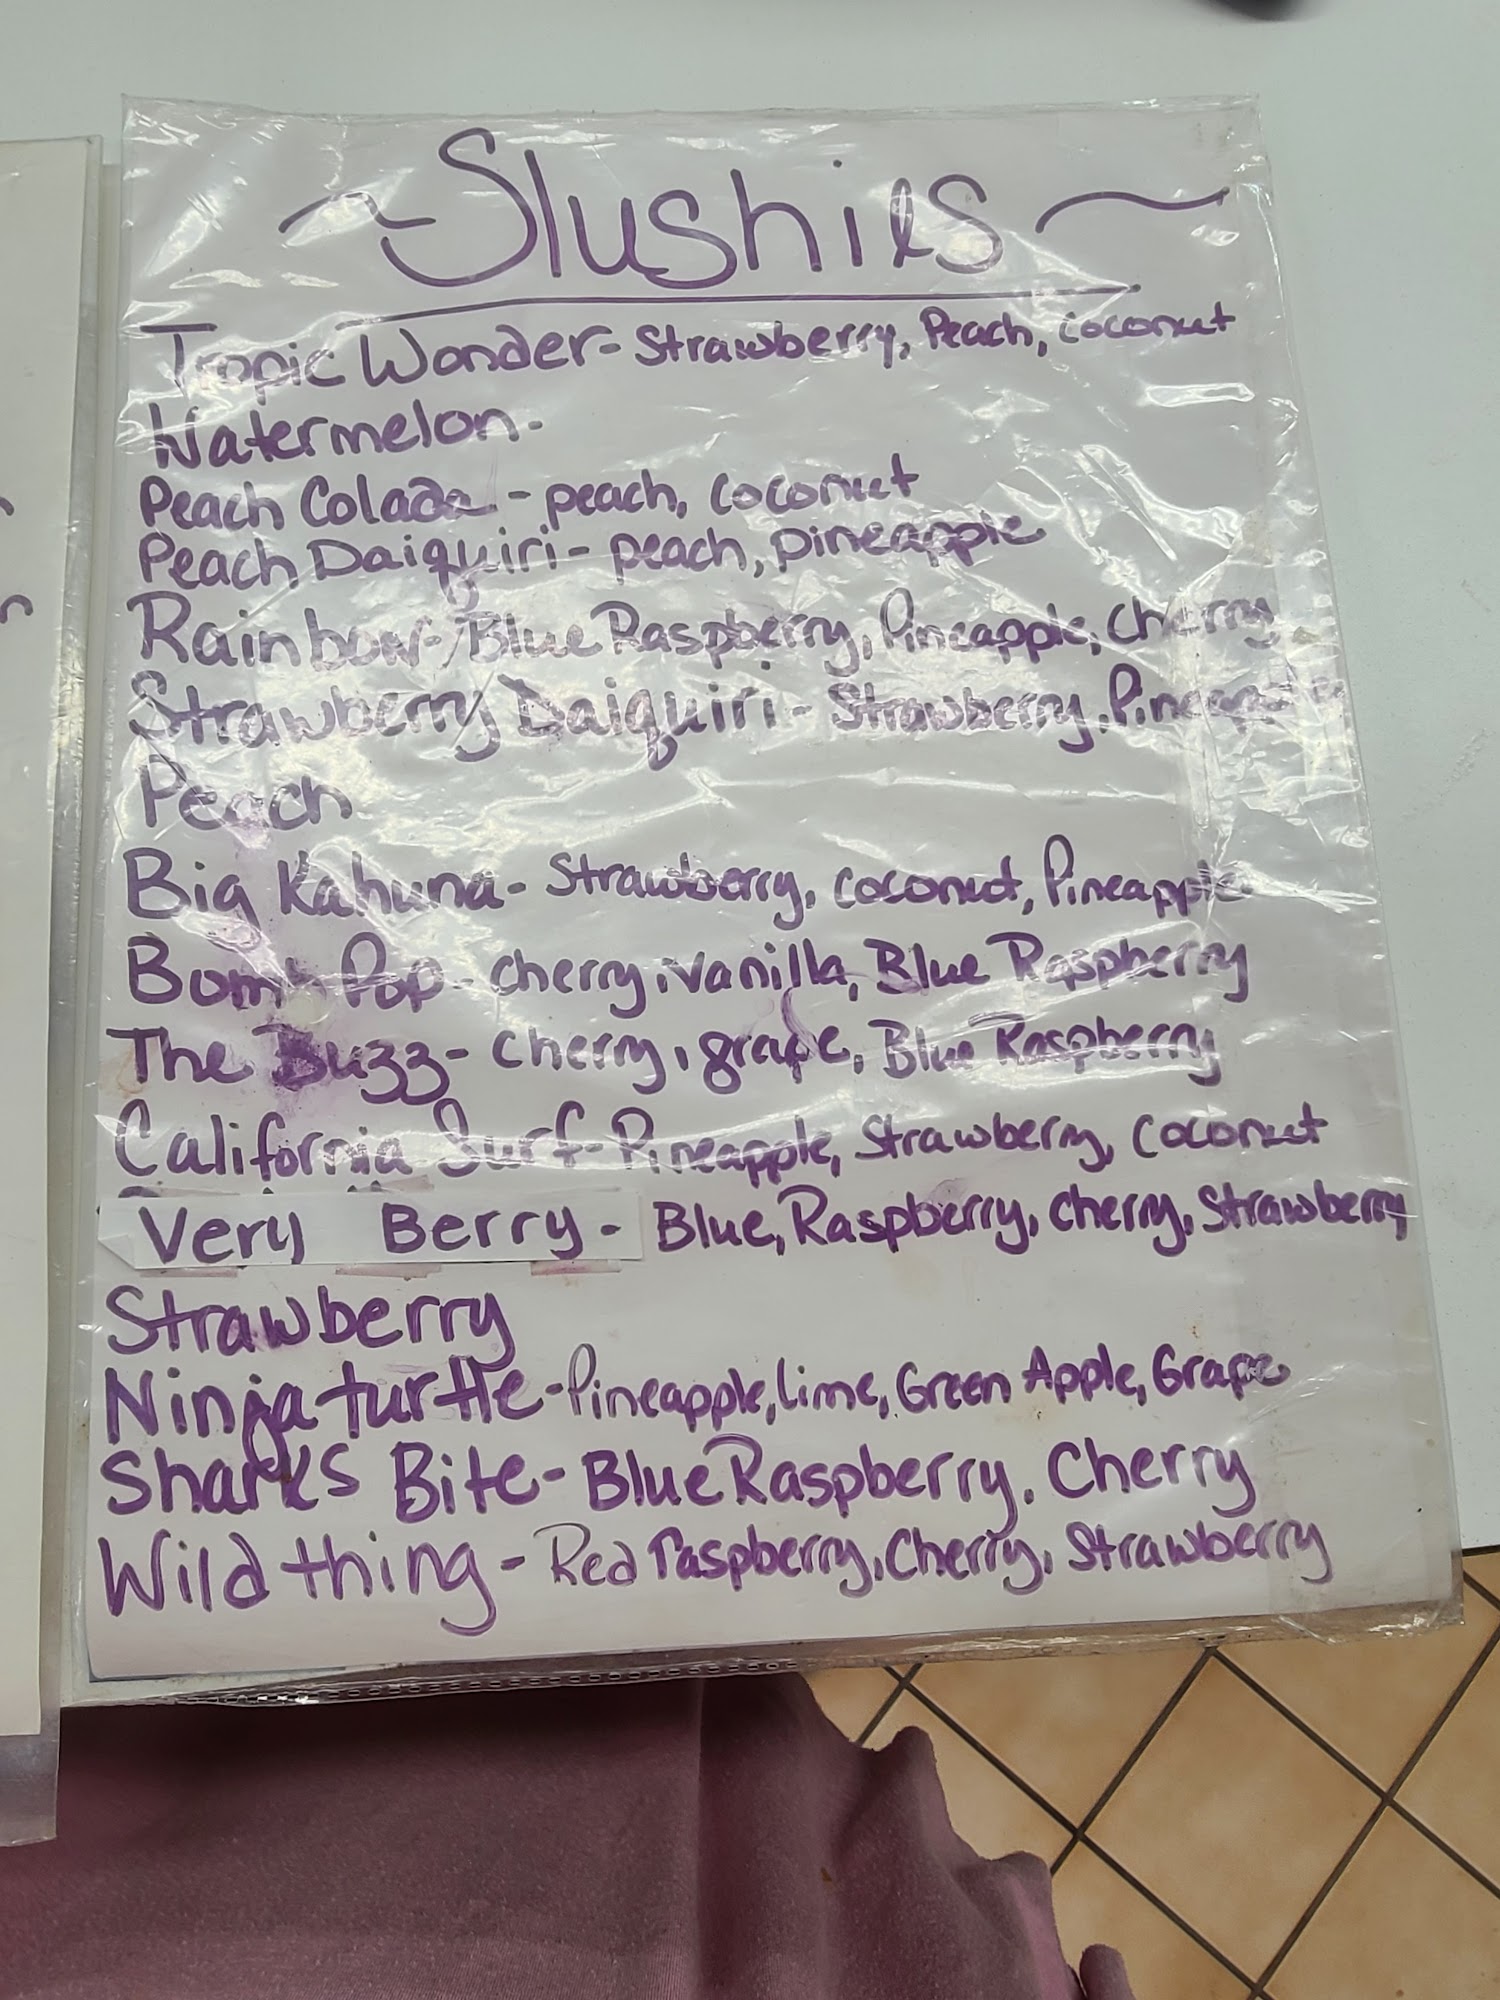 ~Slushies~
Tropic Wonder- Strawberry, Peach, coconut
Watermelon-
Peach Colada - peach, coconut
Peach Daiquiri- peach, pineapple
Rainbow- Blue Raspberry, Pineapple, Cherry
Strawberry Daiquiri- Strawberry, Pineapple
Peach
Big Kahuna- Strawberry, coconut, Pineapple
Bomb Pop- cherry, vanilla, Blue Raspberry
The Buzz- cherry, grape, Blue Raspberry
California Surf- Pineapple, Strawberry, Coconut
Very Berry- Blue, Raspberry, cherry, Strawberry
Strawberry
Ninja turtle- Pineapple, lime, Green Apple, Grape
Sharks Bite- Blue Raspberry, Cherry
Wild thing- Red raspberry, Cherry, Strawberry